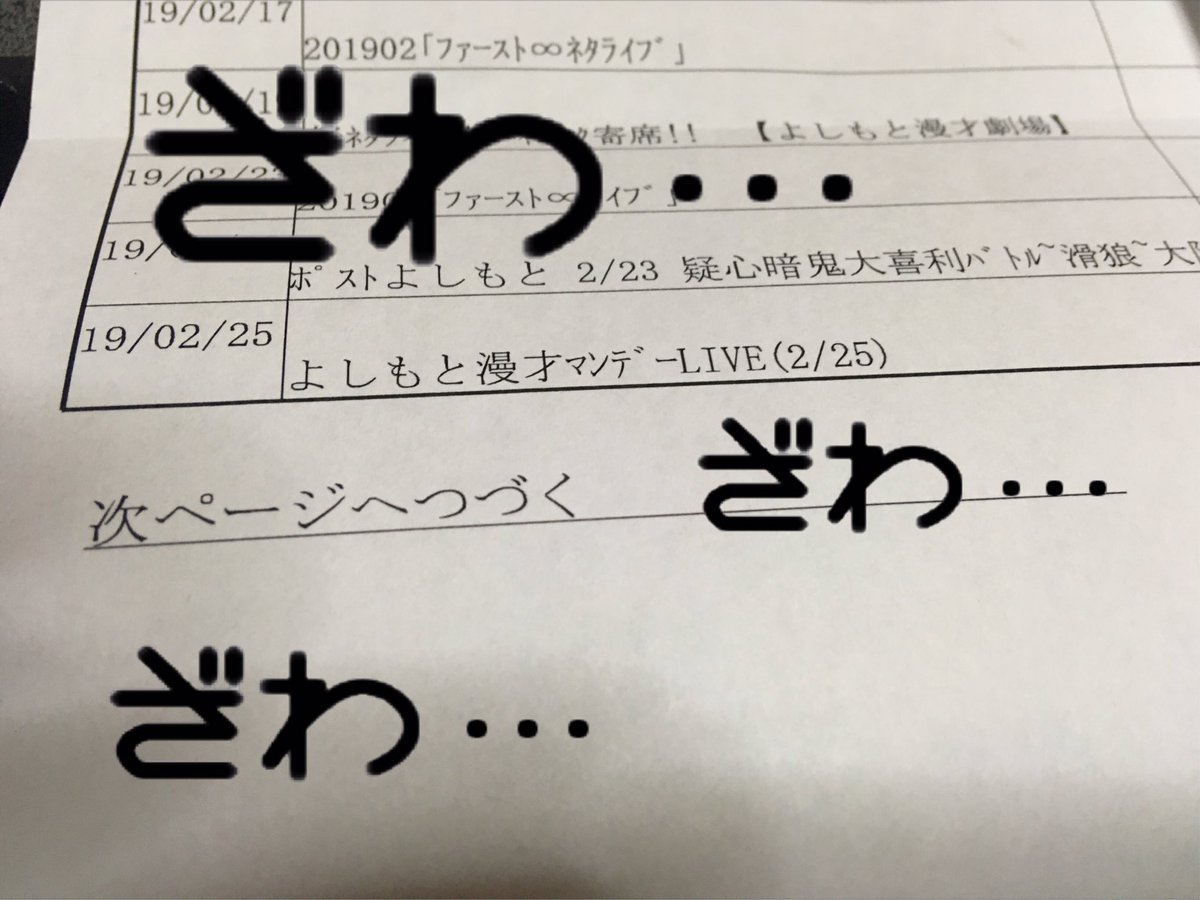 19/02/17
201902「ファースト∞ネタライブ」
寄席!! 【よしもと漫才劇場】
ざわ・・・
「ファースト∞ イブ」
19/
ポストよしもと 2/23 疑心暗鬼大喜利バトル~滑狼~大
19/02/25
よしもと漫才マンデーLIVE(2/25)
次ページへつづく
ざわ・・・
ざわ・・・